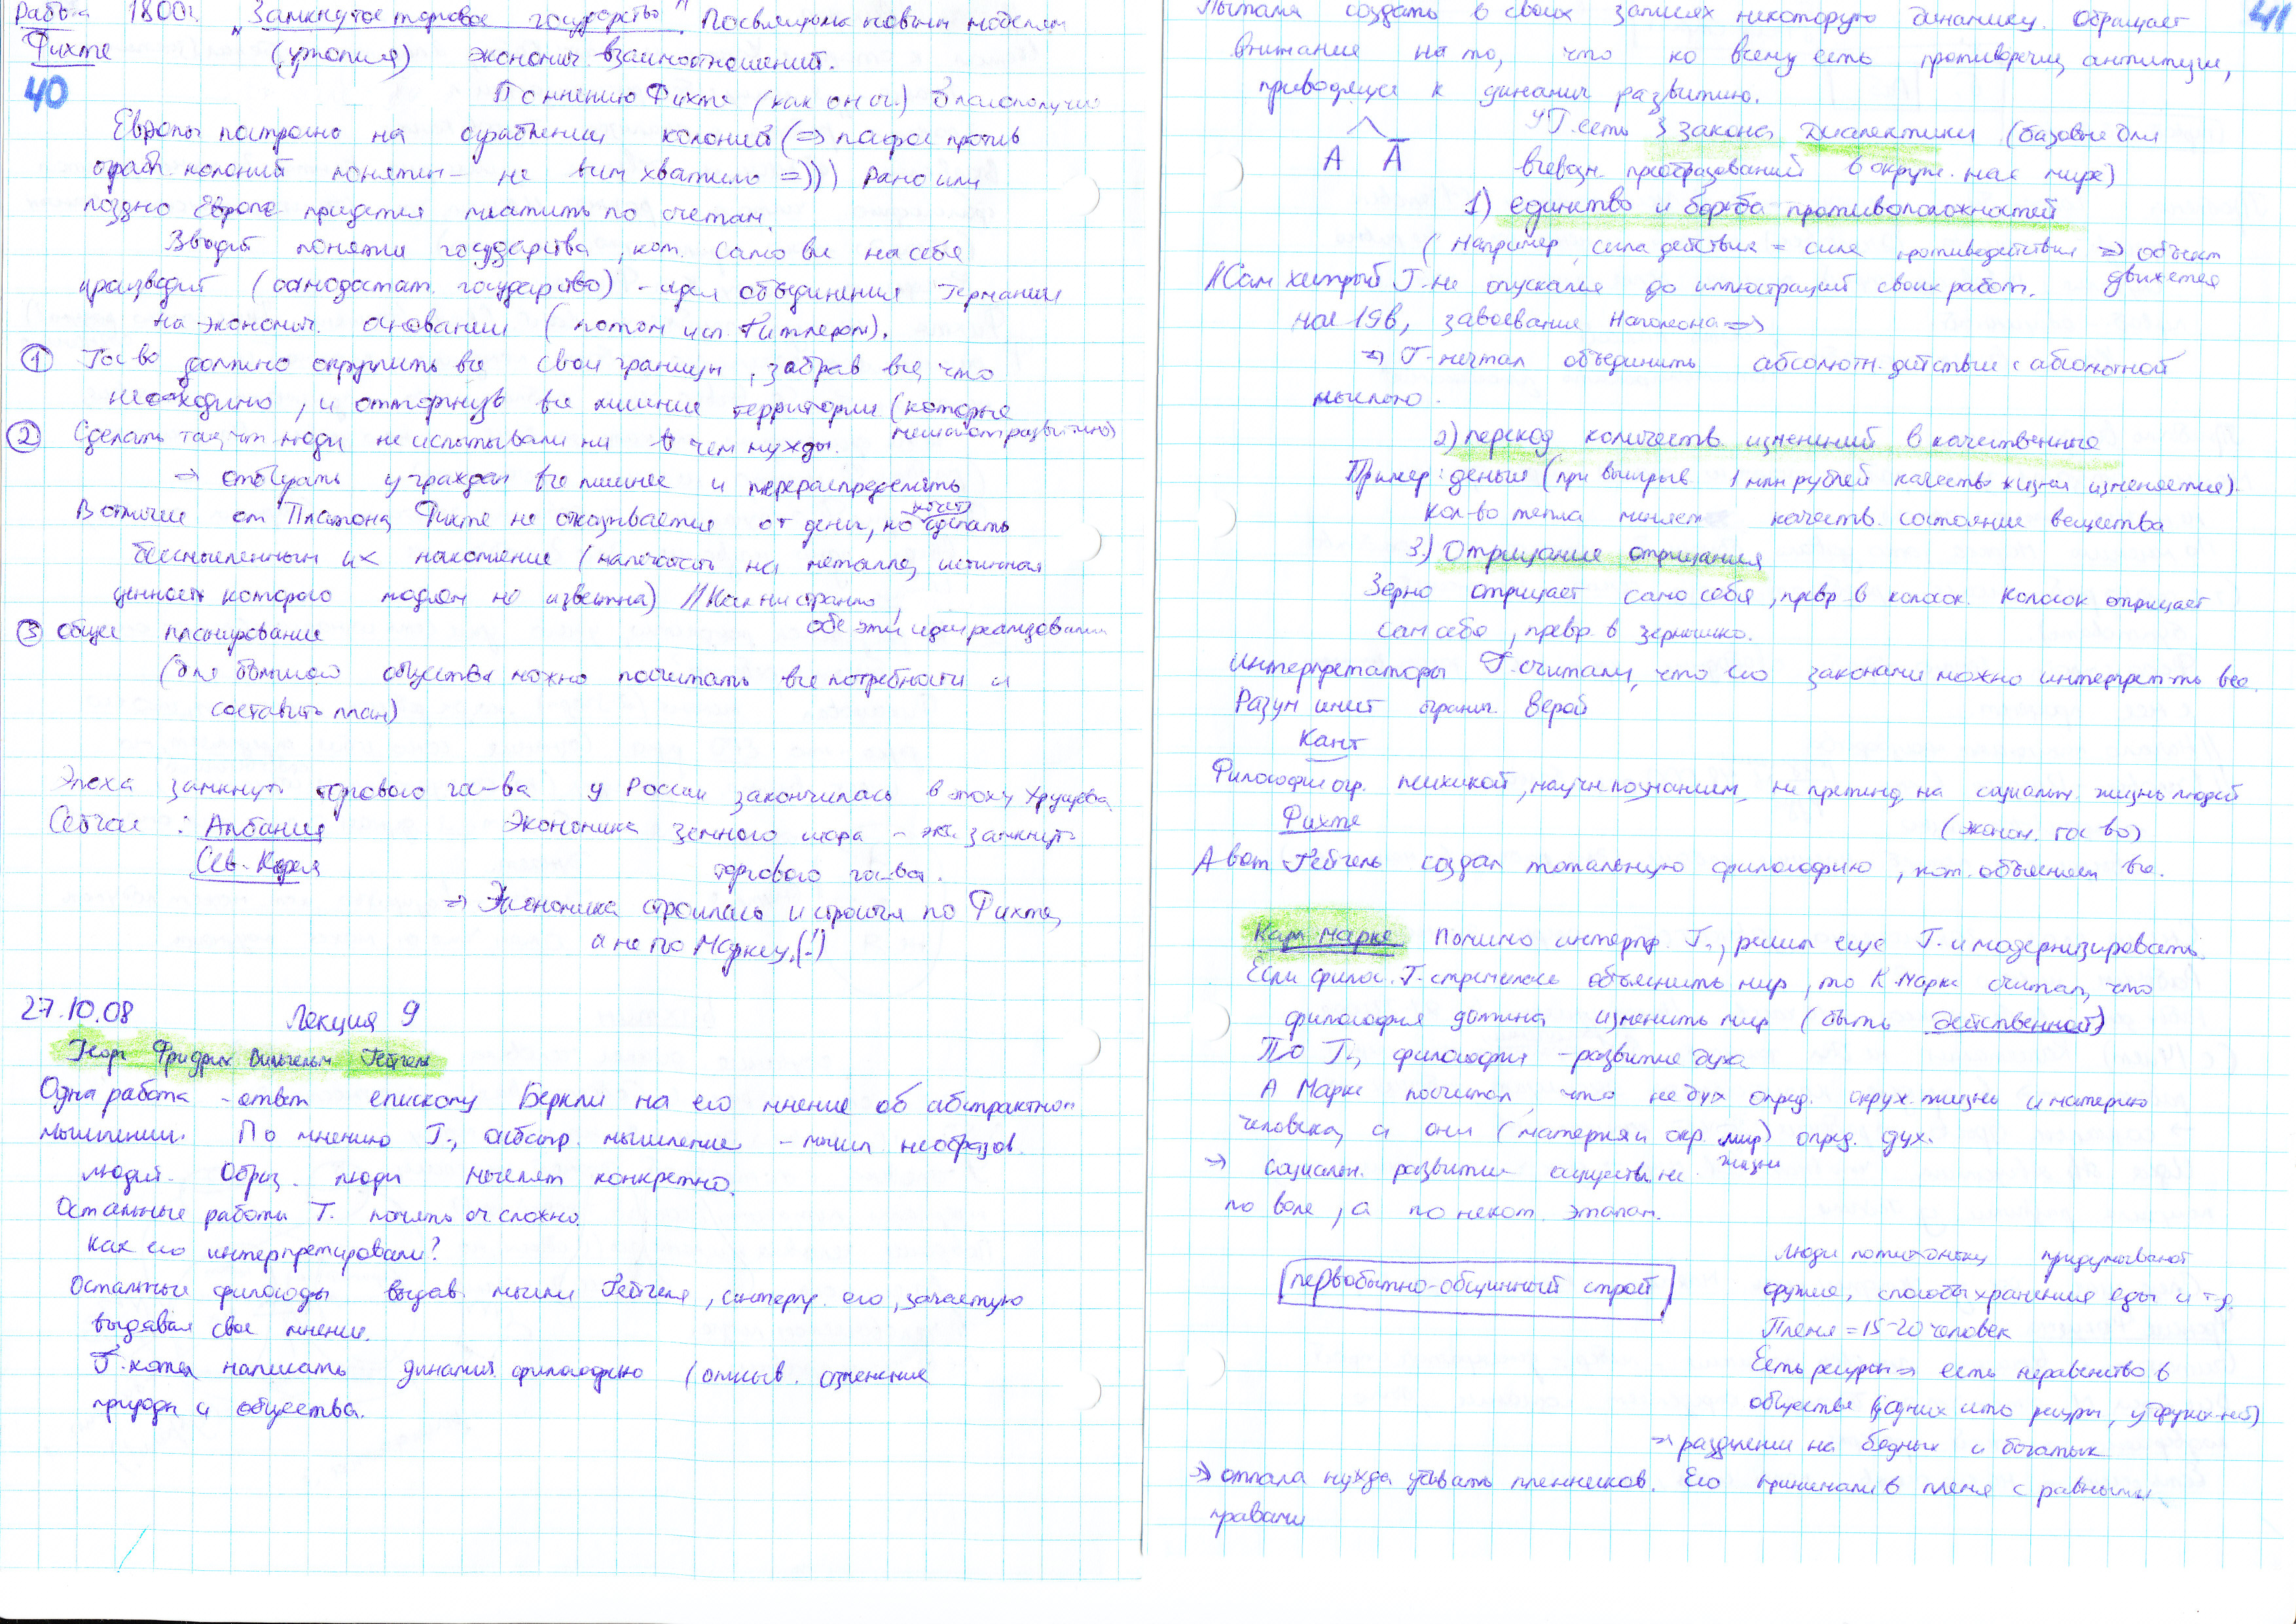 Работа 1800г. "Замкнутое торговое государство". Посвящена новым моделям
Фихте (утопия) экономич. взаимоотношений.
40
По мнению Фихте (как он сч.) благополучие
Европы построено на ограблении колоний (⇒ пафос против
ограб. колоний понятен – не всем хватило =))) Рано или
поздно Европе придется платить по счетам.
Вводит понятие государства, кот. само все на себя
производит (самодостат. государство) – идея объединения Германии
на экономич. основании (потом исп. Гитлером).
① Гос-во должно округлить все свои границы, забрав все, что
необходимо, и отторгнув все лишние территории (которые
мешают развитию)
② Сделать так, чт люди не испытывали ни в чем нужды.
⇒ отбирать у граждан все лишнее и перераспределить
В отличие от Платона, Фихте не отказывается от денег, но хочет сделать
бессмысленным их накопление (напечатать на металле, истинная
ценность которого людям не известна) //Как ни странно,
обе эти идеи реализовали
③ общее планирование
(для большого общества можно посчитать все потребности и
составить план)
Эпоха замкнут. торгового гос-ва у России закончилась в эпоху Хрущева
Сейчас: Албания
Сев. Корея
Экономика земного шара – эк. замкнут.
торгового гос-ва.
⇒ Экономика строилась и строится по Фихте,
а не по Марксу.(!)
27.10.08 Лекция 9
Георг Фридрих Вильгельм Гейгель
Одна работа – ответ епископу Беркли на его мнение об абстрактном
мышлении. По мнению Г., абстр. мышление – мышл. необразов.
людей. Образ. люди мыслят конкретно.
Остальные работы Г. понять оч. сложно.
Как его интерпретировали?
Остальные философы выдав. мысли Гейгеля, интерпр. его, зачастую
выдавая свое мнение.
Г. хотел написать динамич. философию (описыв. изменение
природы и общества.
41
Пытался создать в своих записях некоторую динамику. Обращает
внимание на то, что ко всему есть противоречия, антитезы,
приводящие к динамич. развитию.
A Ā
У Г. есть 3 закона диалектики (базовые для
всевозм. преобразований в окруж. нас мире)
1) единство и борьба противоположностей
(Например, сила действия = силе противодействия ⇒ объект
движется
//Сам хитрый Г. не опускался до иллюстраций своих работ.
нач 19в, завоевание Наполеона ⇒
⇒ Г. мечтал объединить абсолютн. действие с абсолютной
мыслью.
2) переход количеств. изменений в качественные
Пример: деньги (при выигрыше 1 млн рублей качество жизни изменяется).
Кол-во тепла меняет качеств. состояние вещества
3) Отрицание отрицания
Зерно отрицает само себя, превр в колосок. Колосок отрицает
сам себя, превр. в зернышко.
Интерпретаторы Г. считали, что его законами можно интерпрет-ть все.
Разум имеет огранич. Верой
Кант
Философия огр. психикой, научн. познанием, не претенд. на социальн. жизнь людей
Фихте (эконом. гос-во)
А вот Гейгель создал тотальную философию, кот. объясняет все.
Карл Маркс Помимо интерпр. Г., решил еще Г. и модернизировать.
Если филос. Г. стремилась объяснить мир, то К. Маркс считал, что
философия должна изменить мир (быть действенной)
По Г., философия – развитие духа
А Маркс посчитал, что не дух опред. окруж. жизнь и материю
человека, а они (материя и окр. мир) опред. дух.
жизни
⇒ социальн. развитие осуществл. не
по воле, а по некот. этапам.
первобытно-общинный строй
Люди потихоньку придумывают
оружие, способы хранения еды и т.д.
Племя = 15-20 человек
Есть ресурсы ⇒ есть неравенство в
обществе (у одних есть ресурсы, у других нет)
⇒ разделение на бедных и богатых
⇒ отпала нужда убивать пленников. Его принимали в племя с равными
правами